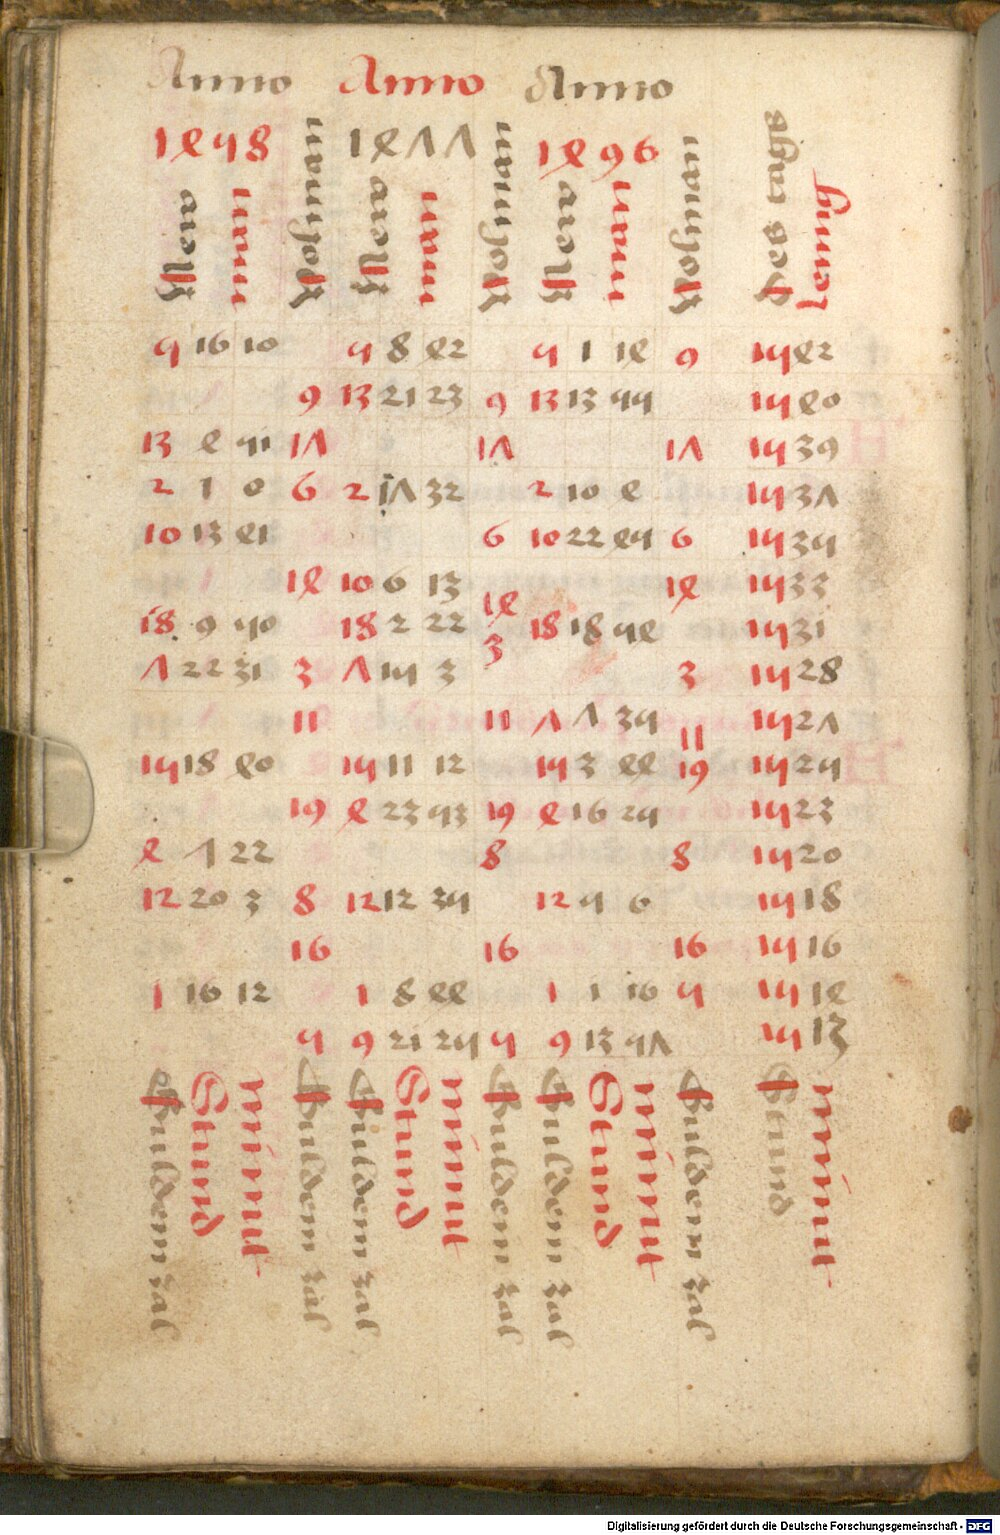 Anno Anno Anno
1458 1477 1496
New man Volman New man Volman New man Volman des tags leng
5 16 10 5 8 42 5 1 14 9 15 42
9 13 21 23 9 13 13 55 15 40
13 4 51 17 17 17 15 39
2 1 0 6 2 17 32 2 10 4 15 37
10 13 41 6 10 22 45 6 15 35
14 10 6 13 14 14 15 33
18 9 50 18 2 22 3 18 18 54 15 31
7 22 31 3 7 15 3 3 15 28
11 11 7 7 35 11 15 27
15 18 40 15 11 12 15 3 44 19 15 25
19 4 23 53 19 4 16 25 15 23
4 7 22 8 8 15 20
12 20 3 8 12 12 35 12 5 6 15 18
16 16 16 15 16
1 16 12 1 8 44 1 1 16 5 15 14
5 9 21 25 5 9 13 57 15 13
Guldem zal Stund minut Guldem zal Guldem zal Stund minut Guldem zal Guldem zal Stund minut Guldem zal Stund minut
Digitalisierung gefördert durch die Deutsche Forschungsgemeinschaft - DFG